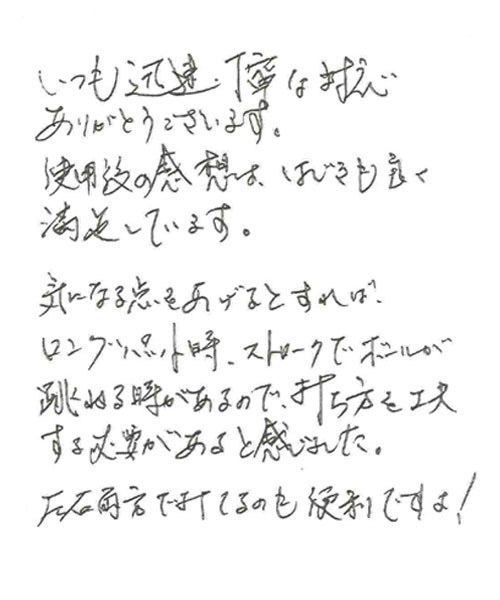 いつも迅速・丁寧な対応
ありがとうございます。
使用後の感想は、はじきも良く
満足しています。
気になる点をあげるとすれば、
ロングパット時、ストロークでボールが
跳ねる時があるので、打ち方を工夫
する必要があると感じました。
左右両方で打てるのも便利ですよ!